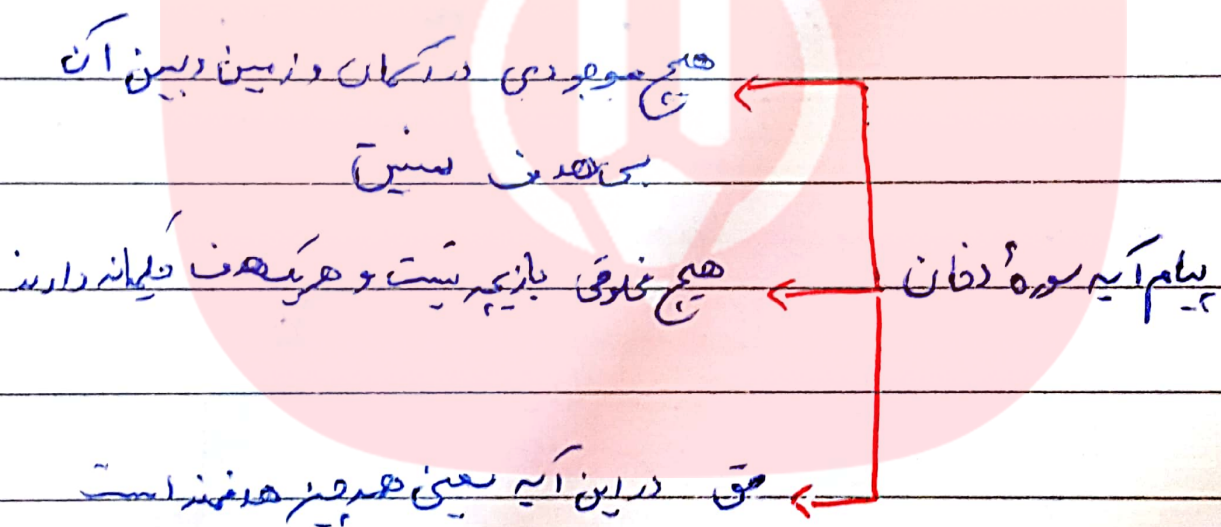 هیچ موجودی در آسمان و زمین و بین آن
بی هدف نیست
پیام آیه سورهٔ دخان
هیچ مخلوقی بازیچه نیست و هریک هدف حکیمانه دارند
حق در این آیه یعنی همه چیز هدفمند است